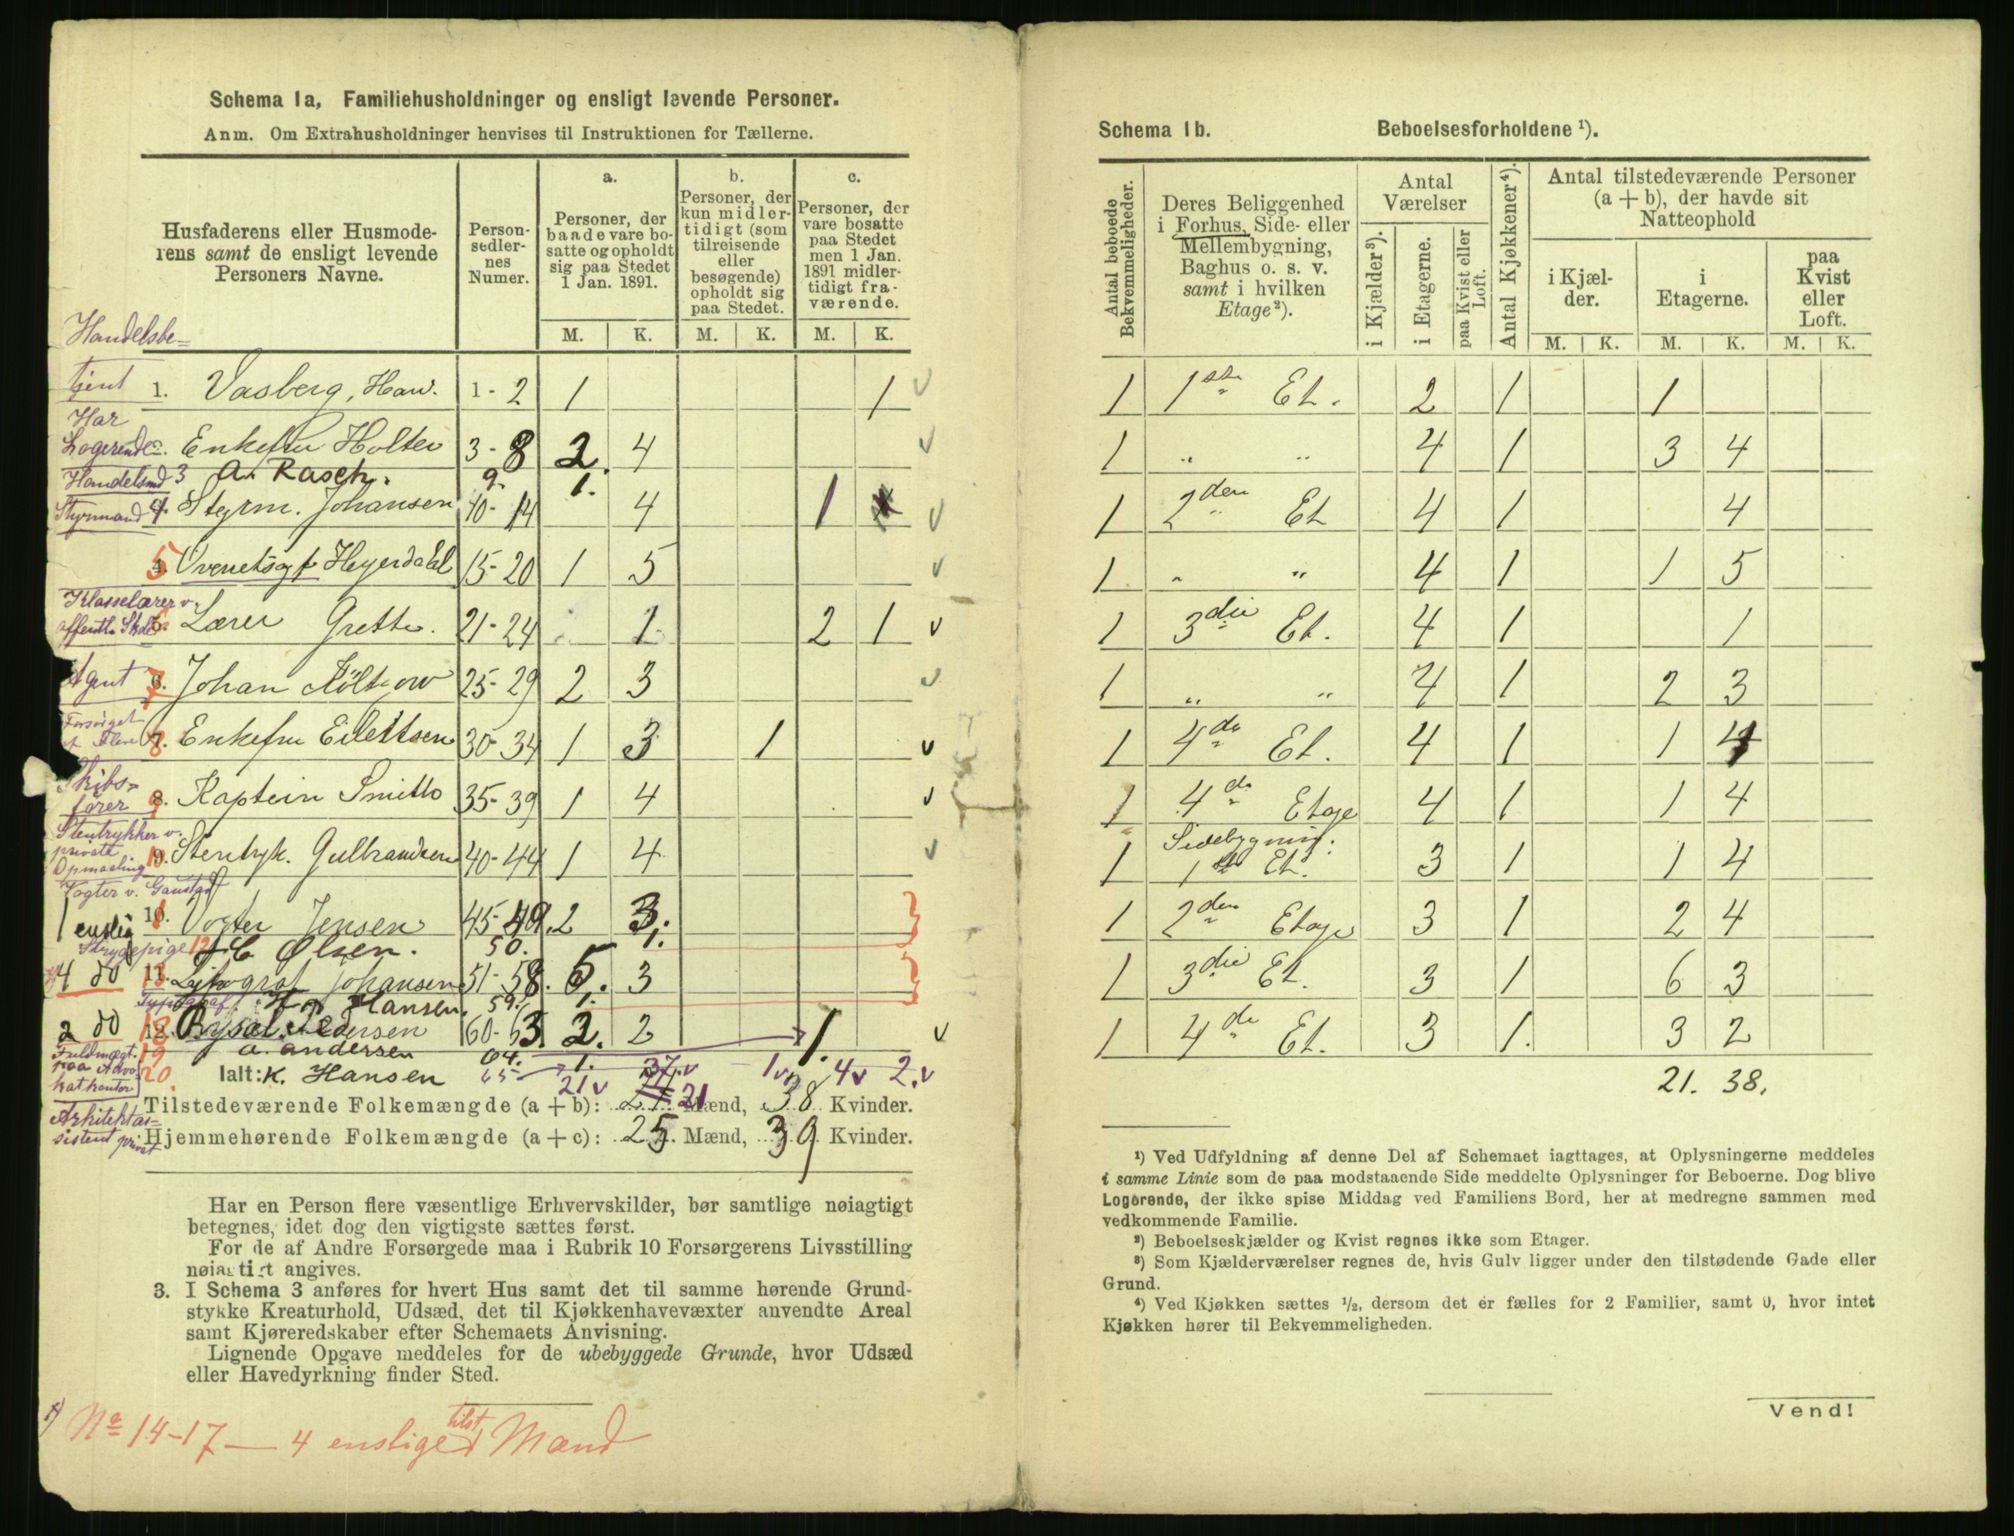 Schema 1a, Familiehusholdninger og ensligt levende Personer.
Anm. Om Extrahusholdninger henvises til Instruktionen for Tællerne.
Husfaderens eller Husmode-
rens samt de ensligt levende
Personers Navne.
Person-
sedler-
nes
Numer.
a.
Personer, der
baade vare bo-
satte og opholdt
sig paa Stedet
1 Jan. 1891.
b.
Personer, der
kun midler-
tidigt (som
tilreisende
eller
besøgende)
opholdt sig
paa Stedet.
c.
Personer, der
vare bosatte
paa Stedet
men 1 Jan.
1891 midler-
tidigt fra-
værende.
M. K. M. K. M. K.
Handelsbe-
tjent 1. Vasberg, Haw. 1-2 1 1
Har
Logerende Enkefru Holter 3-8 2. 4
Handelsmd 3 A. Rasch. 9. 1.
Styrmand 4. Styrm. Johansen 10-14 4 1
5 Overretssagf Heyerdahl 15-20 1 5
Klasselærer v.
offentl. Skole 6. Lærer Grette. 21-24 1 2 1
Agent 7 Johan Költzow 25-29 2 3
Forsørget
af Flere 8 Enkefru Eilertsen 30-34 1 3 1
Skibs-
fører 9 Kaptein Smitto 35-39 1 4
Stentrykker v.
private
Opmaaling 10. Stentryk. Gulbrandsen 40-44 1 4
Vogter v. Gaustad
1 enslig 10. Vogter Jensen 45-49. 2 3.
Strygepige 12 C Olsen. 50. 1.
4 do 13. Lithograf Johansen 51-58. 5. 3
Typograf Hansen. 59. 1.
2 do 18 Bysal. Pedersen 60-63 2. 2 1.
Fuldmægt. 19 a. andersen 64. 1.
paa Advo
katkontor 20. Ialt: K. Hansen 65 21 v 37. v 1 v 4 v 2. v
Tilstedeværende Folkemængde (a + b): 21 Mænd, 38 Kvinder.
Arkitektas-
sistent privat Hjemmehørende Folkemængde (a + c): 25. Mænd, 39 Kvinder.
Har en Person flere væsentlige Erhvervskilder, bør samtlige nøiagtigt
betegnes, idet dog den vigtigste sættes først.
For de af Andre Forsørgede maa i Rubrik 10 Forsørgerens Livsstilling
nøiagtigt angives.
3. I Schema 3 anføres for hvert Hus samt det til samme hørende Grund-
stykke Kreaturhold, Udsæd, det til Kjøkkenhavevæxter anvendte Areal
samt Kjøreredskaber efter Schemaets Anvisning.
Lignende Opgave meddeles for de ubebyggede Grunde, hvor Udsæd
eller Havedyrkning finder Sted.
No 14-17 — 4 enslige tilst. Mænd
Schema 1b. Beboelsesforholdene ¹).
Antal beboede
Bekvemmeligheder.
Deres Beliggenhed
i Forhus, Side- eller
Mellembygning,
Baghus o. s. v.
samt i hvilken
Etage²).
Antal
Værelser
i Kjælder³).
i Etagerne.
paa Kvist eller
Loft.
Antal Kjøkkener⁴).
Antal tilstedeværende Personer
(a + b), der havde sit
Natteophold
i Kjæl-
der.
i
Etagerne.
paa
Kvist
eller
Loft.
M. K. M. K. M. K.
1 1ste Et. 2 1 1
1 " " 4 1 3 4
1 2den Et 4 1 4
1 " " 4 1 1 5
1 3die Et. 4 1 1
1 " " 4 1 2 3
1 4de Et. 4 1 1 4
1 4de Etage 4 1 1 4
Sidebygning.
1 1ste Et. 3 1 1 4
1 2den Etage 3 1 2 4
1 3die Et. 3 1 6 3
1 4de Et. 3 1. 3 2
21. 38.
¹) Ved Udfyldning af denne Del af Schemaet iagttages, at Oplysningerne meddeles
i samme Linie som de paa modstaaende Side meddelte Oplysninger for Beboerne. Dog blive
Logerende, der ikke spise Middag ved Familiens Bord, her at medregne sammen med
vedkommende Familie.
²) Beboelseskjælder og Kvist regnes ikke som Etager.
³) Som Kjælderværelser regnes de, hvis Gulv ligger under den tilstødende Gade eller
Grund.
⁴) Ved Kjøkken sættes ½, dersom det er fælles for 2 Familier, samt 0, hvor intet
Kjøkken hører til Bekvemmeligheden.
Vend!